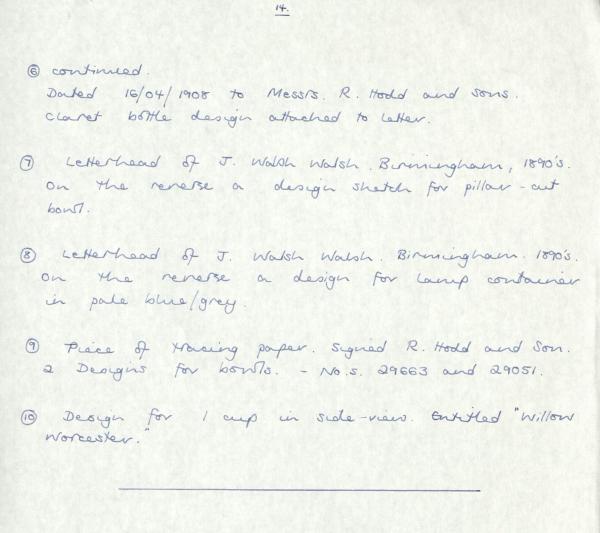 14.
⑥ continued.
Dated 16/04/1908 to Messrs. R. Hodd and Sons.
Claret bottle design attached to letter.
⑦ Letterhead of J. Walsh Walsh. Birmingham, 1890's.
On the reverse a design sketch for pillar-cut
bowl.
⑧ Letterhead of J. Walsh Walsh. Birmingham. 1890's.
On the reverse a design for lamp container
in pale blue/grey.
⑨ Piece of tracing paper. Signed R. Hodd and Son.
2 Designs for bowls. - No.s. 29663 and 29051.
⑩ Design for 1 cup in side-view. Entitled "Willow
Worcester."